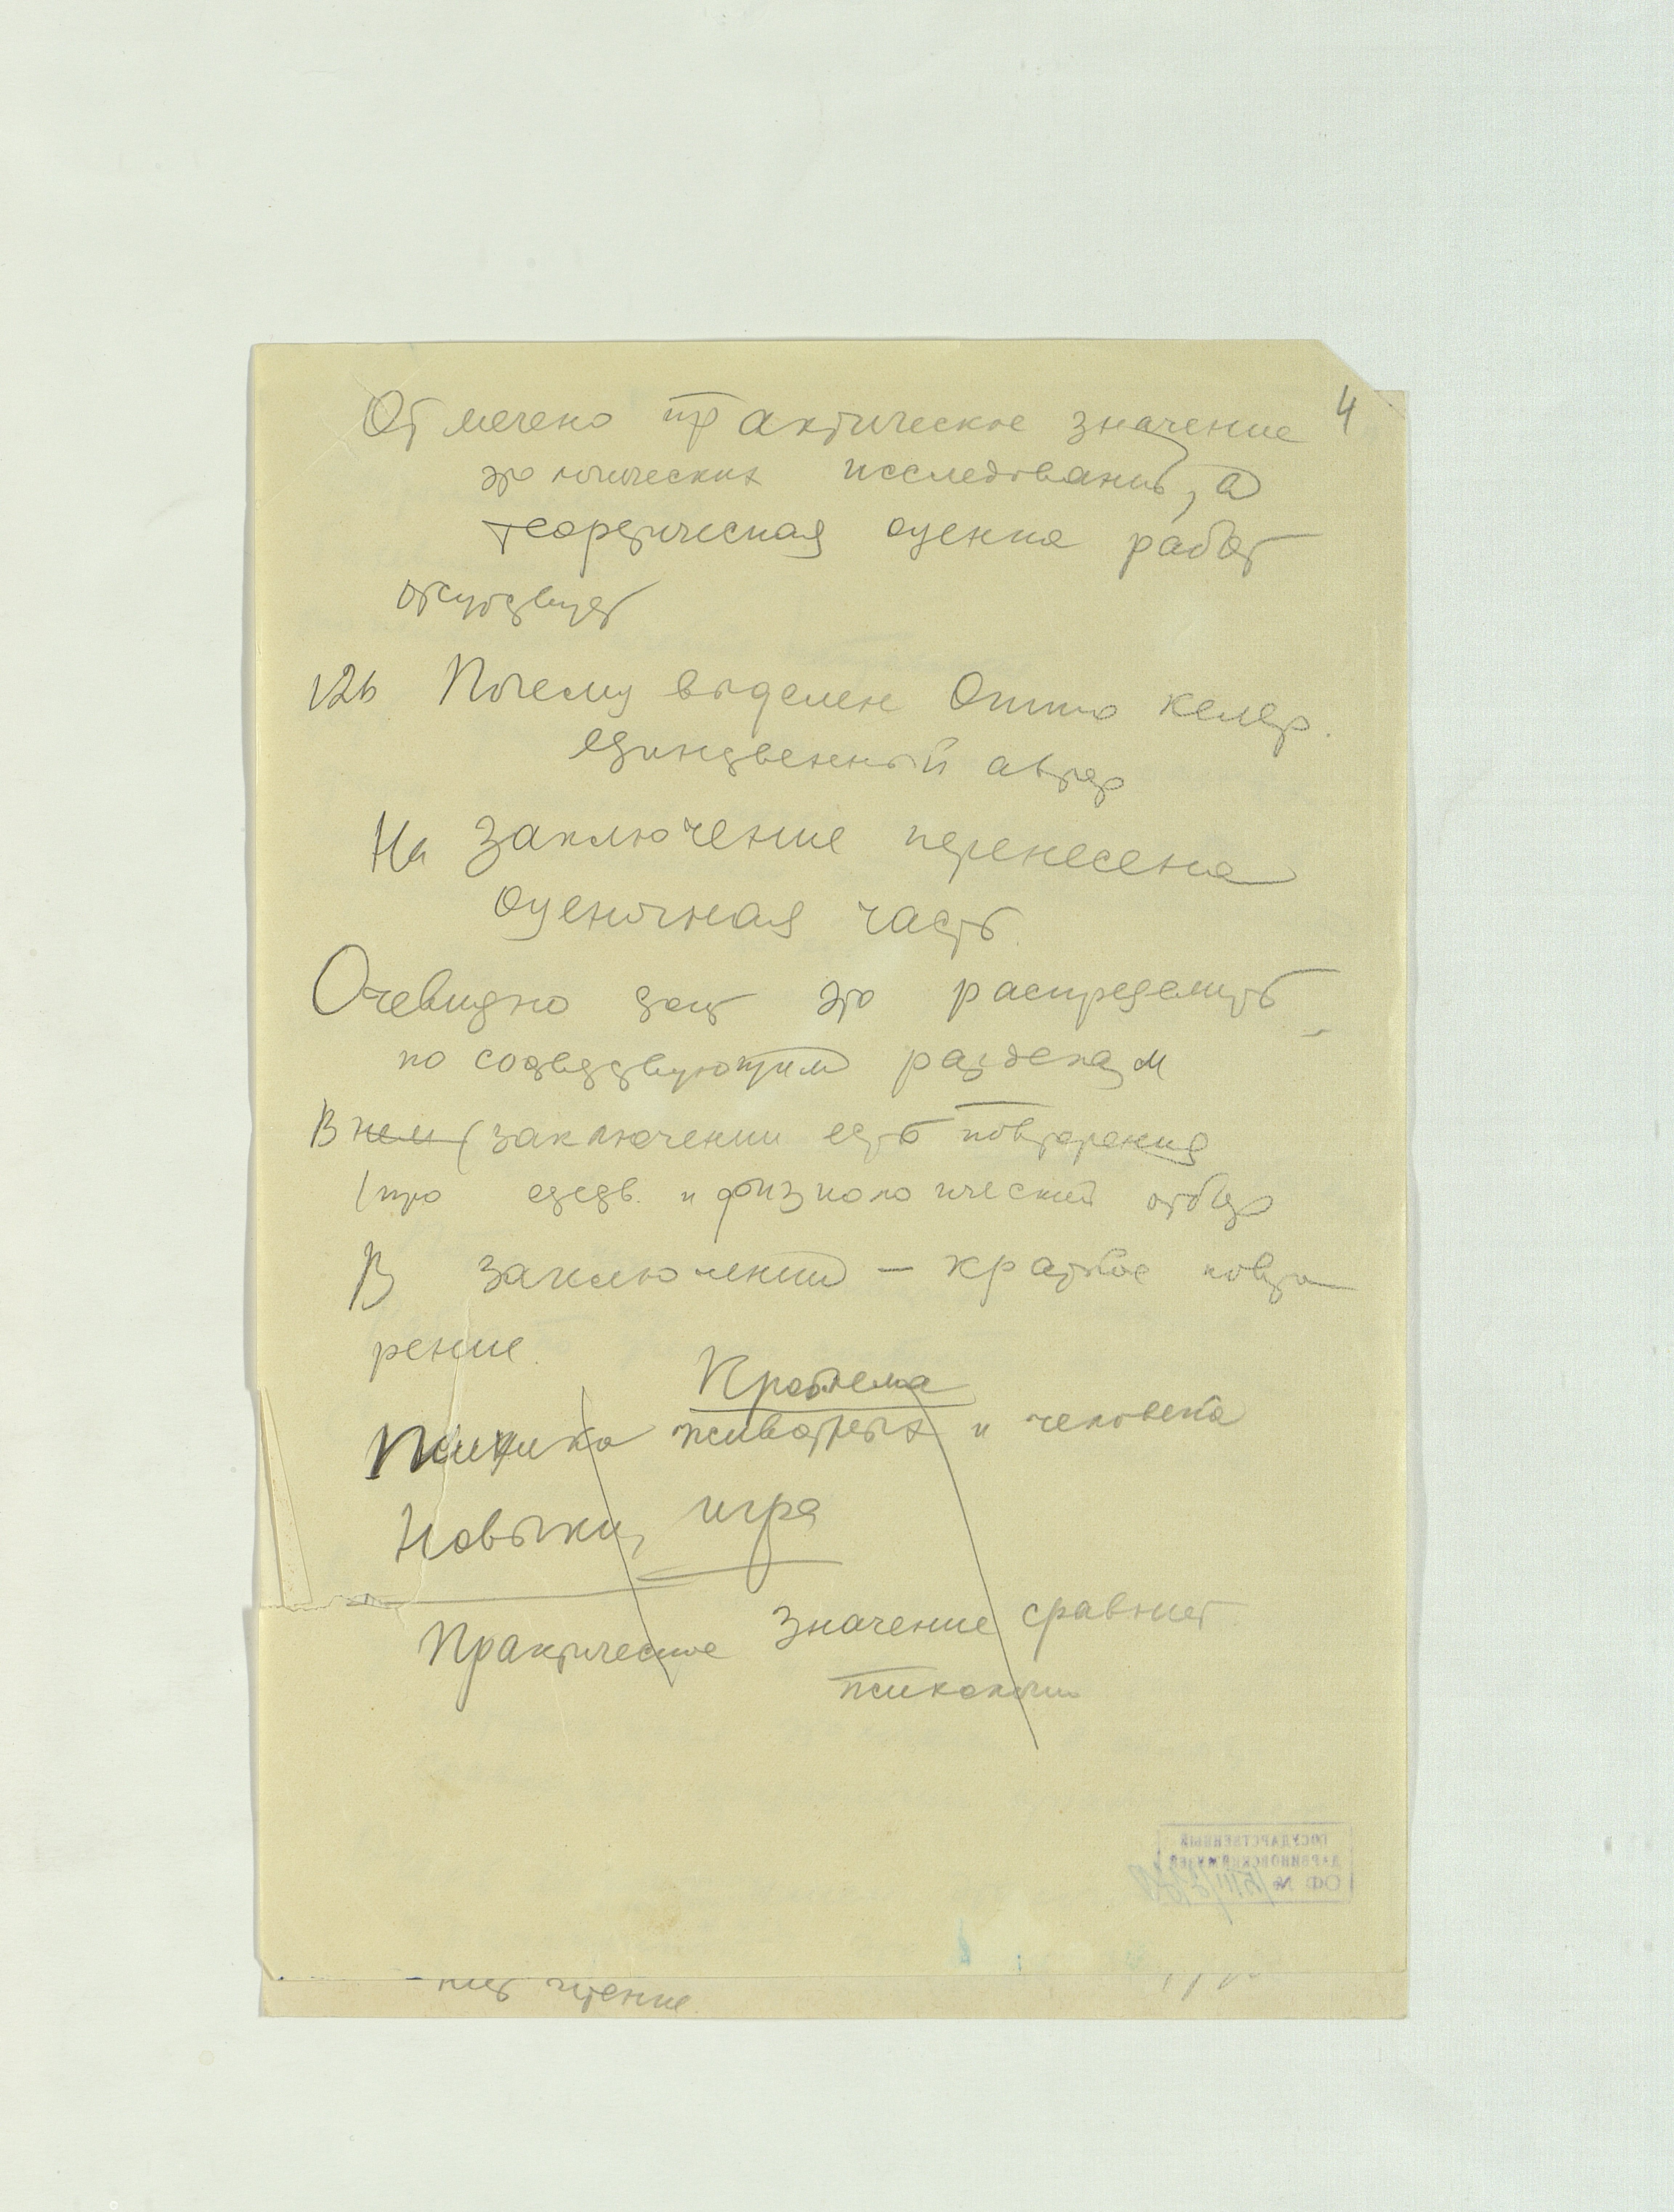 4
Отмечено практическое значение
этологических исследований, а
теоретическая оценка работ
отсутствует
126 Почему выделен Отто Келер.
единственный автор
На заключение перенесена
оценочная часть.
Очевидно это распределить
по соответствующим разделам
В нем (заключении есть повторения
(про естеств. и физиологический отбор
В заключении – краткое повто
рение.
Проблема
Психика животных и человека
Навыки, игра
Практическое значение сравнит.
психологии
ГОСУДАРСТВЕННЫЙ
ДАРВИНОВСКИЙ МУЗЕЙ
ОФ №
чтение